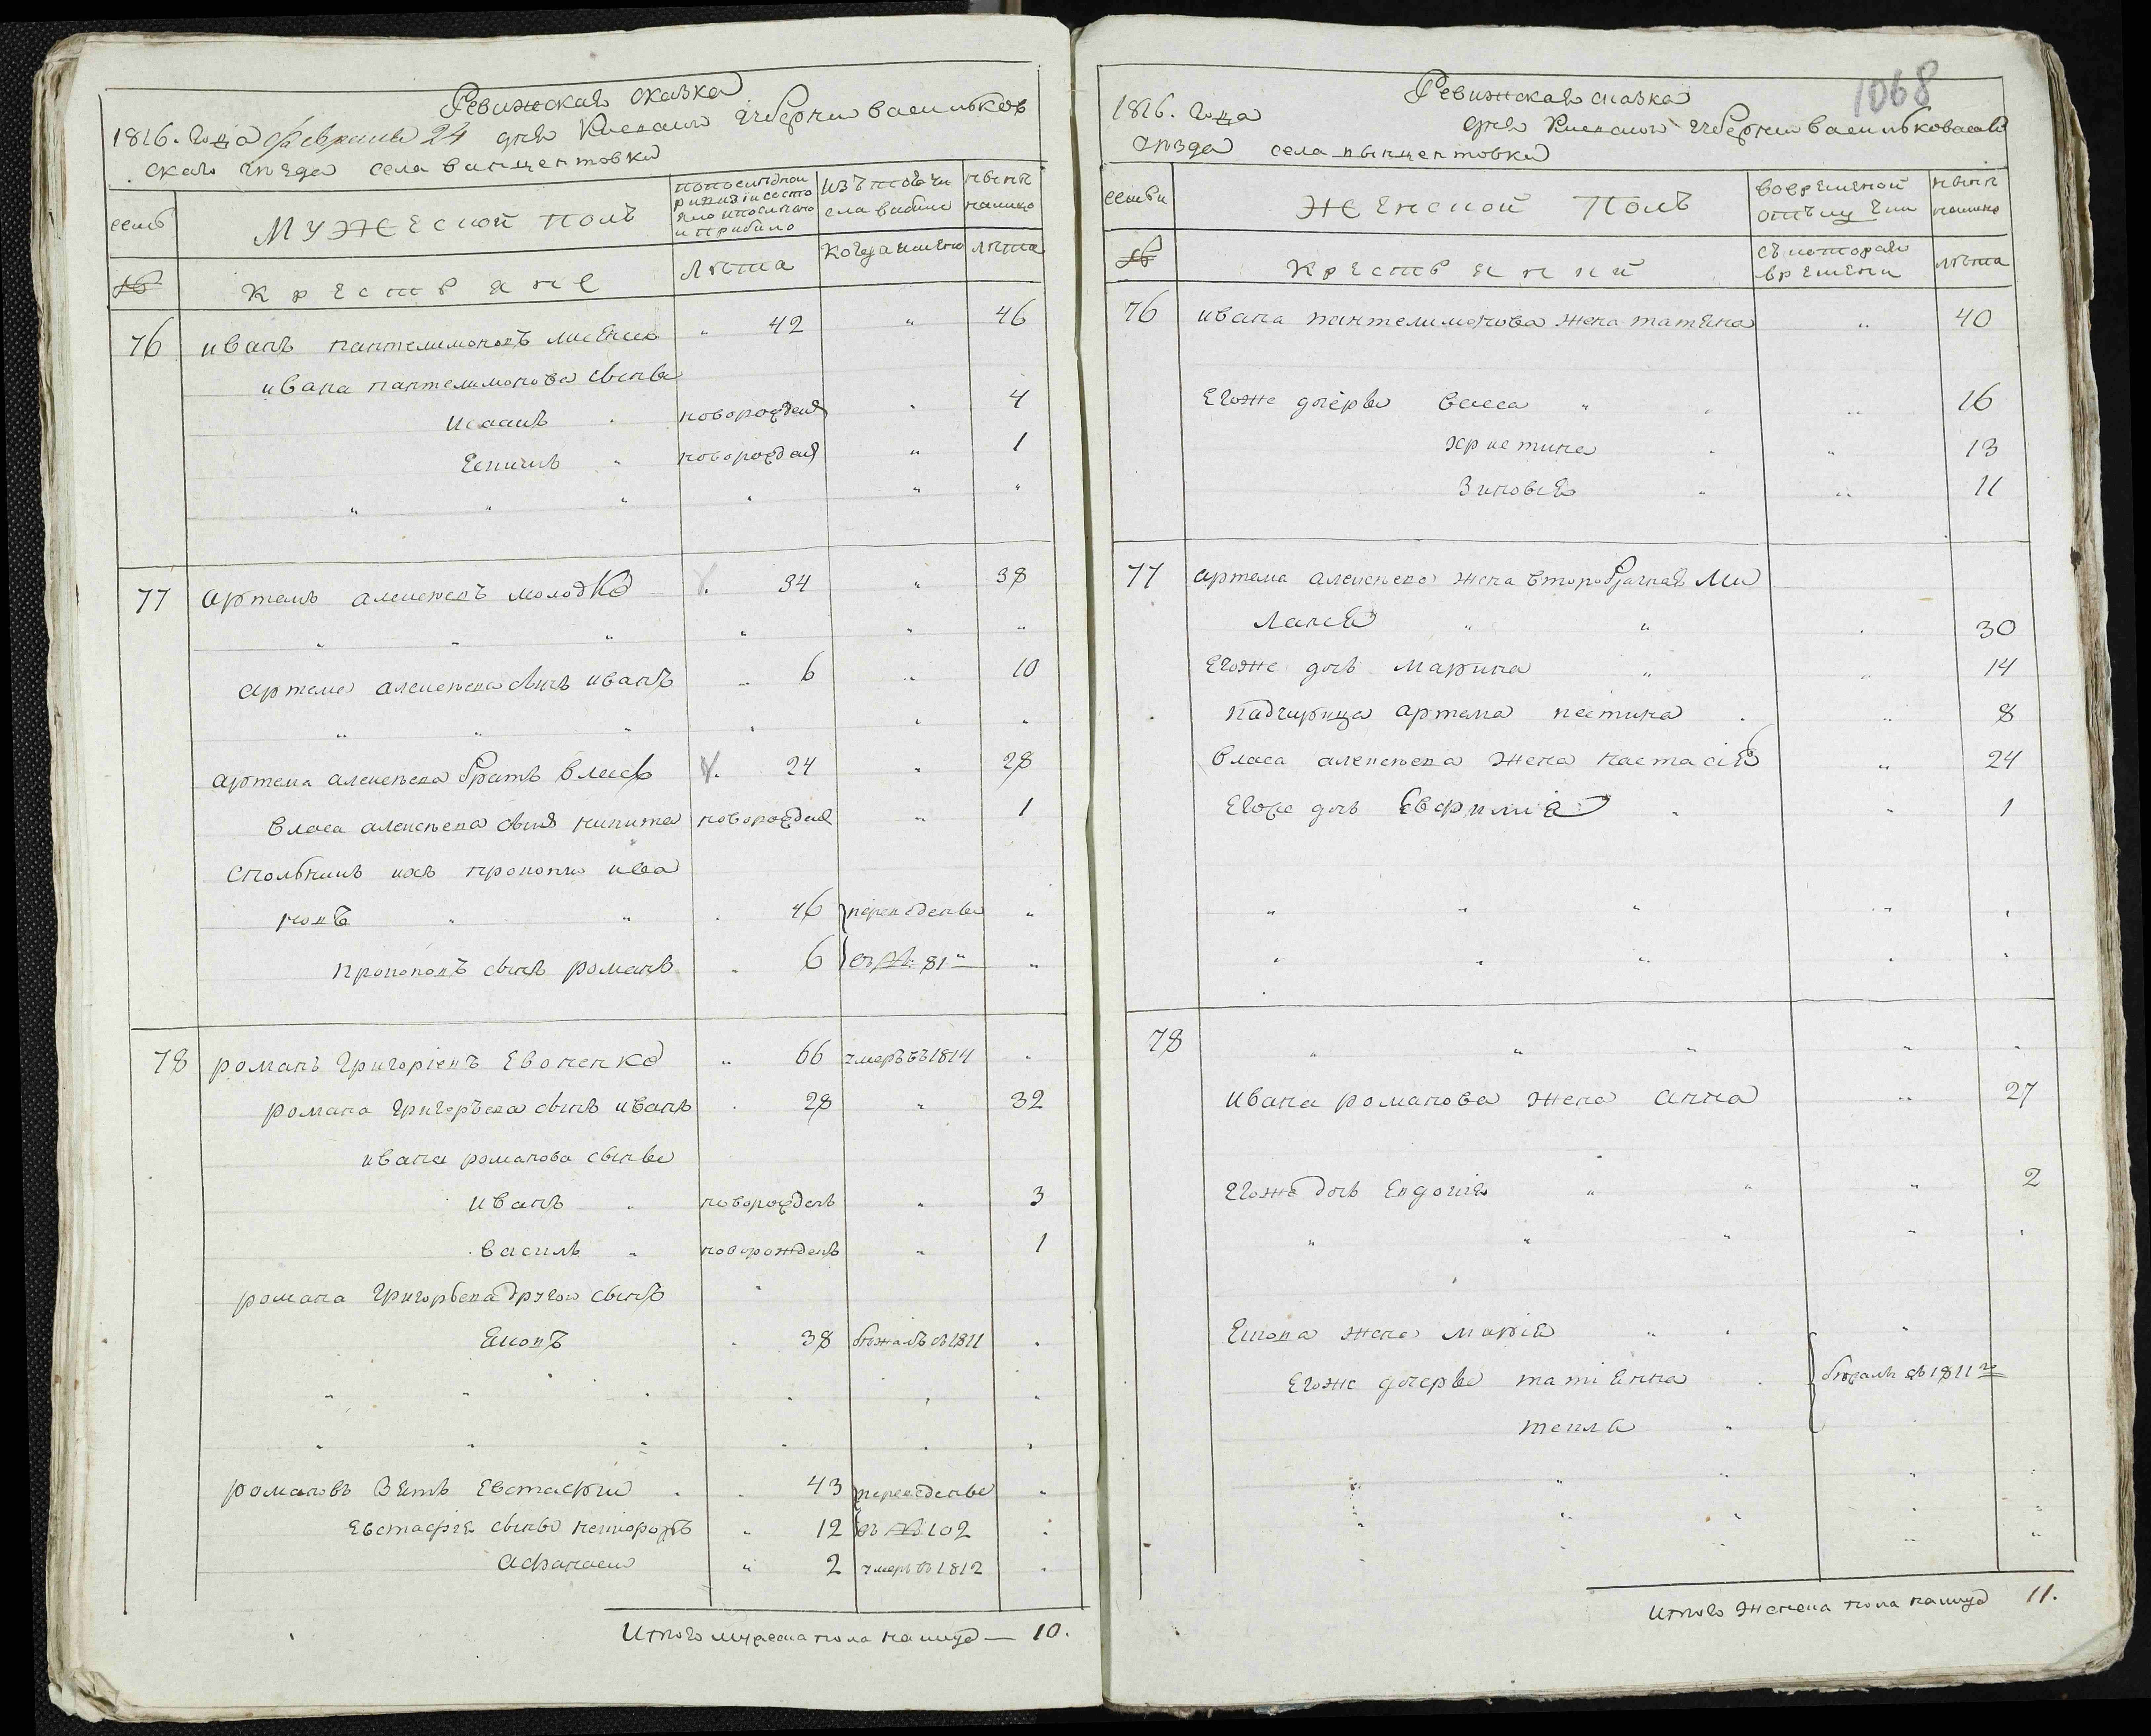 Ревижская сказка
1816. года февраля 24 дня Киевской губернии васильков
скаго уезда села винцентовки
семьи
мужеской полъ
по последной
ревизіи состо
яло и после того
и прибыло
изъ того чи
сла выбыло
ныне
налицо
№
крестьяне
лета
когда имено
лета
76 иванъ пантелимоновъ лисенко " 42 " 46
ивана пантелимонова сынве
исаакъ новорожден " 4
новорожден " 1
77 артемъ алексеевъ молодко 34 " 38
артема алексеева сынъ иванъ " 6 " 10
артема алексеева братъ власъ 24 " 28
власа алексеева сынъ никита новорожден " 1
спольникъ ихъ прокопи ива
новъ " " 46 переведенве "
прокоповъ сынъ романъ 6 въ № 81 "
78 романъ григоріевъ евоненко " 66 умеръ въ 1814 "
романа григорьева сынъ иванъ 28 " 32
ивана романова сынве
иванъ " новорожденъ " 3
василь " новорожденъ " 1
романа григорьева другои сынъ
38 бежалъ въ 1811
романовъ зять евстафии 43 переведенве
евстафия сынве никифоръ " 12 въ № 102
афанасии " 2 умеръ въ 1812
итого мужеска пола налицо — 10.
1068
Ревижская сказка
1816. года дня Киевской губернии васильковскаго
уезда села винцентовки
семьи
женской полъ
во временой
отлучки
ныне
налицо
№
крестьянки
съ котораго
времени
лета
76 ивана пантелимонова жена татяна " 40
егоже дочерве васса " " 16
христина " 13
зиновия " " 11
77 артема алексеева жена второбрачная ми
лания " " 30
егоже дочь марина " " 14
падчирица артема настина " 8
власа алексеева жена настасія " 24
егоже дочь Евфимия " 1
78 " " " " "
ивана романова жена анна " 27
егоже дочь евдокия " " " 2
жена марія " "
егоже дочерве татіянна бежалъ въ 1811 го
текля
итого женска пола налицо 11.